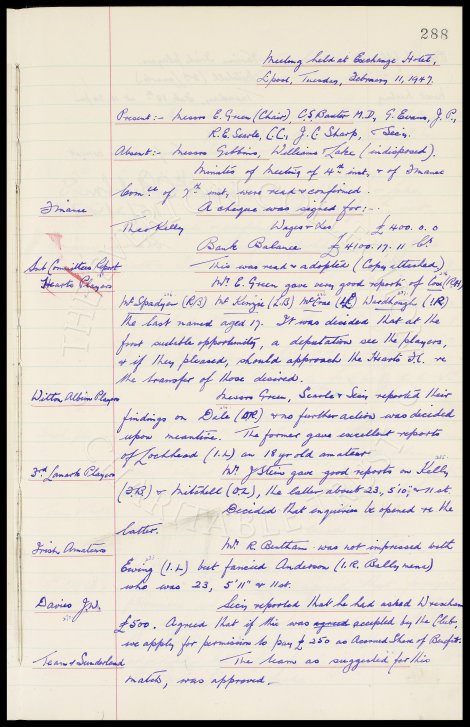 288
Meeting held at Exchange Hotel,
L'pool, Tuesday, February 11, 1947.
Present:- Messrs E. Green (Chair), C.S. Baxter M.D., G. Evans, J.P.,
R.E. Searle, C.C., J.C. Sharp, & Secy.
Absent:- Messrs Gibbins, Williams & Lake (indisposed).
Minutes of Meeting of 4th inst. & of Finance
Com'ee of 7th inst. were read & confirmed.
Finance A cheque was signed for:-
Theo Kelly Wages & £400. 0. 0
Bank Balance £4100. 17. 11 Cr
Sub Committee's Report This was read & adopted (Copy attached)
Hearts Players Mr. E. Green gave very good reports of Cox (RH)
McSpadyen (RB) McKenzie (LB) McCrae Wardhaugh (IR)
the last named aged 17. It was decided that at the
first suitable opportunity, a deputation see the players,
& if they pleased, should approach the Hearts F.C. re
the transfer of those desired.
Witton Albion Players Messrs Green, Searle & Secy reported their
findings on & no further action was decided
upon meantime. The former gave excellent reports
of Lockhead (I.L) an 18 yr old amateur
3rd Lanark Players Mr. J Stein gave good reports on Kelly
& Mitchell (O.L), the latter about 23, 5'10" & 11 st.
Decided that enquiries be opened re the
latter.
Irish Amateurs Mr. R. Bentham was not impressed with
Ewing (I.L) but fancied Anderson (I.R. Ballymena)
who was 23, 5'11" & 11 st.
Davies J.W. Secy reported that he had asked Wrexham
£500. Agreed that if this was agreed accepted by the Club,
we apply for permission to pay £250 as Accrued Share of Benefit.
Team v Sunderland The team as suggested for this
match, was approved.